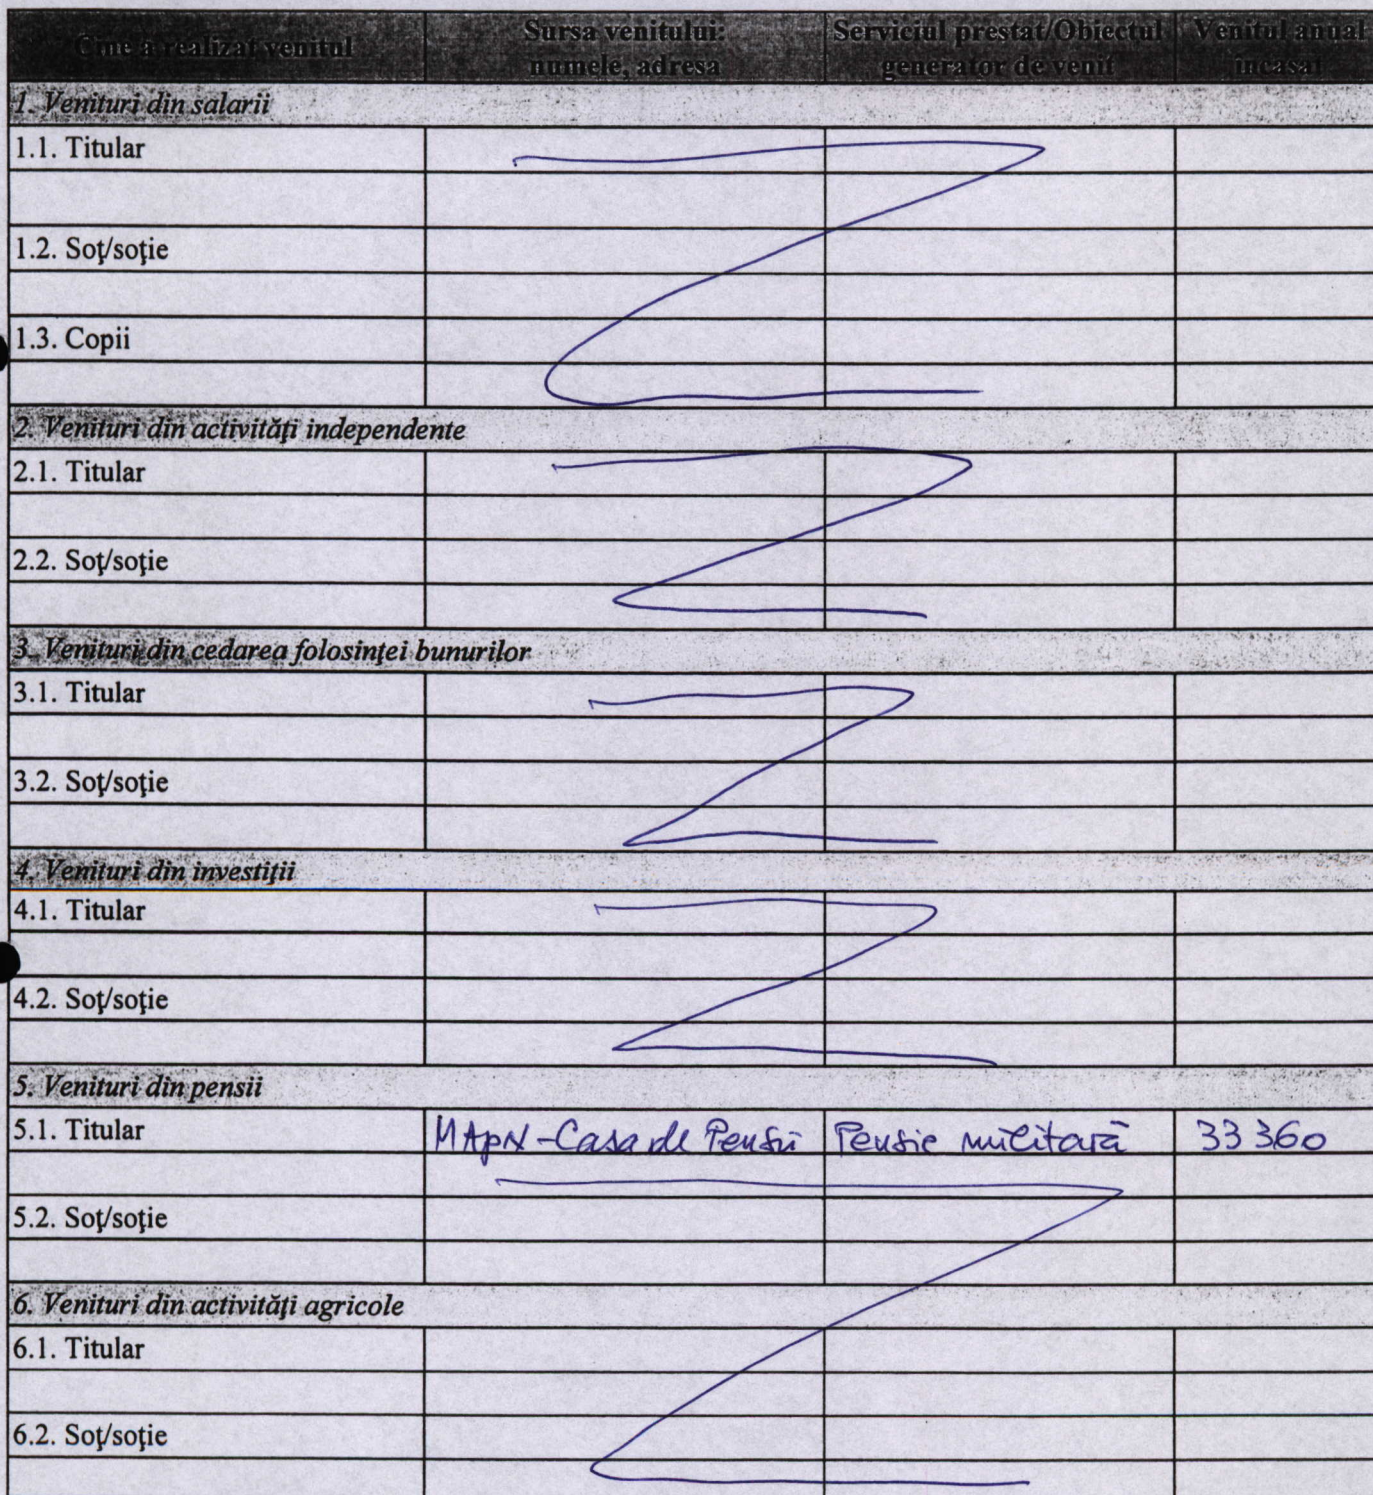 Cine a realizat venitul
Sursa venitului:
numele, adresa
Serviciul prestat/Obiectul
generator de venit
Venitul anual
încasat
1. Venituri din salarii
1.1. Titular
1.2. Soţ/soţie
1.3. Copii
2. Venituri din activităţi independente
2.1. Titular
2.2. Soţ/soţie
3. Venituri din cedarea folosinţei bunurilor
3.1. Titular
3.2. Soţ/soţie
4. Venituri din investiţii
4.1. Titular
4.2. Soţ/soţie
5. Venituri din pensii
5.1. Titular MApN-Casa de Pensii Pensie militară 33 360
5.2. Soţ/soţie
6. Venituri din activităţi agricole
6.1. Titular
6.2. Soţ/soţie